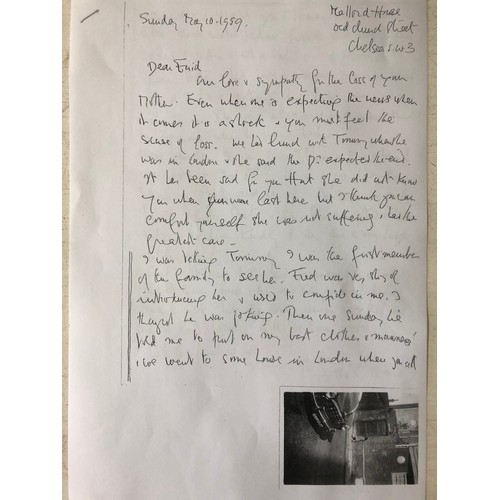 Sunday May 10. 1959.
Mallord House
Old Church Street
Chelsea S.W.3
Dear Enid
Our love & sympathy for the loss of your
Mother. Even when one is expecting the news when
it comes it is a shock & you must feel the
sense of loss. We had lunch with Tommy when she
was in London & she said the Dr expected the end.
It has been sad for you that she did not know
you when you were last here but I think you can
comfort yourself she was not suffering & had the
greatest care -
I was telling Tommy I was the first member
of the family to see her. Fred was very shy of
introducing her & used to confide in me. I
thought he was joking. Then one Sunday he
told me to put on my best clothes & manners
& we went to some house in London where you all